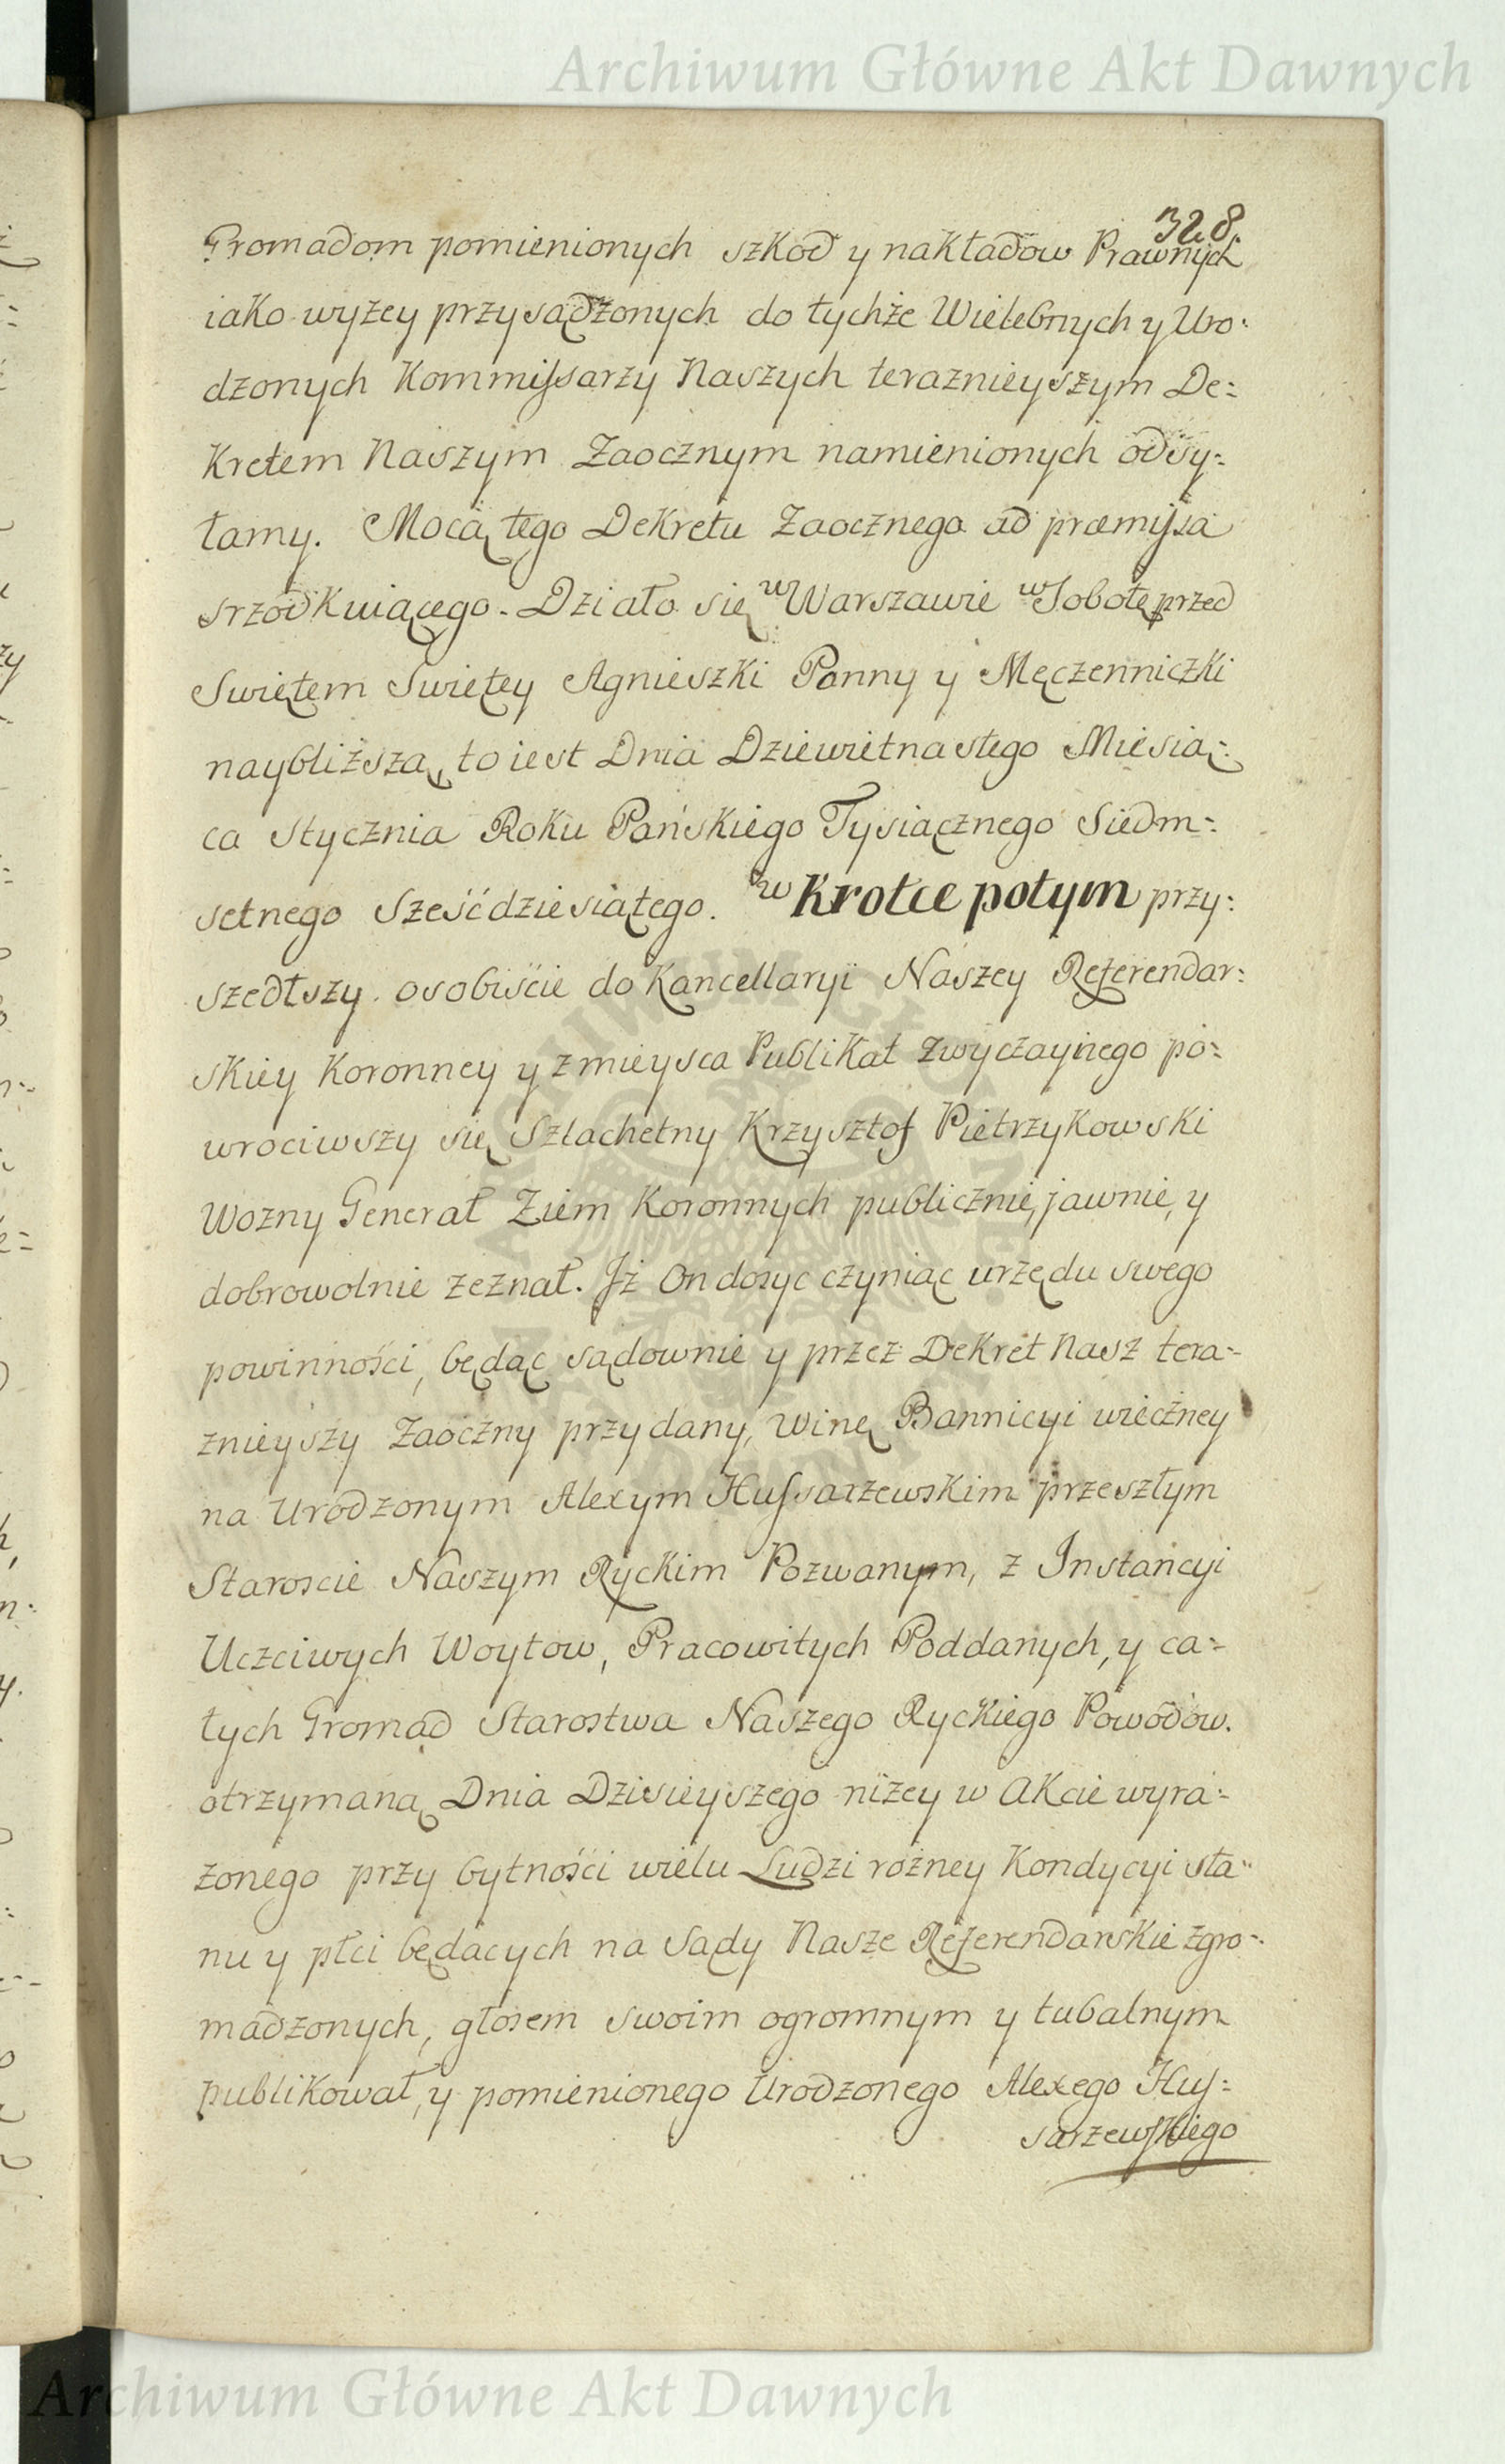 Archiwum Główne Akt Dawnych
328.
Gromadom pomienionych szkod y nakładow Prawnych
iako wyżey przysądzonych do tychże Wielebnych y Uro:
dzonych Kommissarzy Naszych teraznieyszym De:
kretem Naszym Zaocznym namienionych odsy:
łamy. Mocą tego Dekretu Zaocznego ad præmissa
srzodkuiącego. Działo się w Warszawie w Sobotę przed
Swiętem Swiętey Agnieszki Panny y Męczenniczki
naybliższą, to iest Dnia Dziewietnastego Miesią:
ca Stycznia Roku Pańskiego Tysiącznego Siedm:
setnego Sześćdziesiątego. w Krotce potym przy:
szedłszy osobiście do Kancellaryi Naszey Referendar:
skiey Koronney y z mieysca Publikat zwyczaynego po:
wrociwszy się Szlachetny Krzysztof Pietrzykowski
Wozny Generał Ziem Koronnych publicznie, jawnie, y
dobrowolnie zeznał. Jż On dosyc czyniąc urzędu swego
powinności, będąc sądownie y przez Dekret Nasz tera:
znieyszy Zaoczny przydany, winę Bannicyi wieczney
na Urodzonym Alexym Hussarzewskim przeszłym
Staroscie Naszym Ryckim Pozwanym, z Instancyi
Uczciwych Woytow, Pracowitych Poddanych, y ca:
łych Gromad Starostwa Naszego Ryckiego Powodow.
otrzymaną Dnia Dzisieyszego niżey w Akcie wyra:
żonego przy bytności wielu Ludzi rożney Kondycyi sta:
nu y płci będacych na sądy Nasze Referendarskie zgro:
madzonych, głosem swoim ogromnym y tubalnym
publikował, y pomienionego Urodzonego Alexego Hus:
sarzewskiego
Archiwum Główne Akt Dawnych